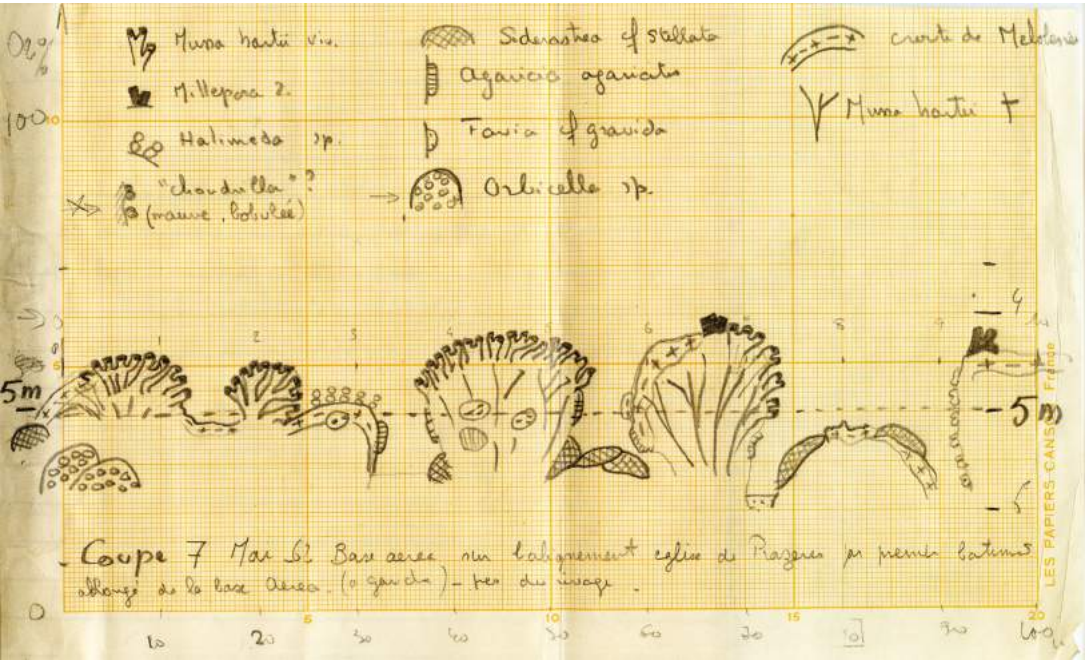 Mussa hartii viv.
Millepora ?.
Halimeda sp.
"chondrilla" ?
(mauve, lobulée)
Siderastrea cf stellata
Agaricia agaricites
Favia cf gravida
Orbicella sp.
croute de Melobesiés
Mussa hartii †
100
10
5
1 2 3 4 5 6 7 8 9 10
4
5m
5m
6
Coupe 7 Mai 62 Base aerea sur l'alignement eglise de Prazeres par premier batiment
allongé de la base Aerea. (a gauche) - pres du rivage.
0
5 10 15 20
10 20 30 40 50 60 70 80 90 100
LES PAPIERS CANSON France